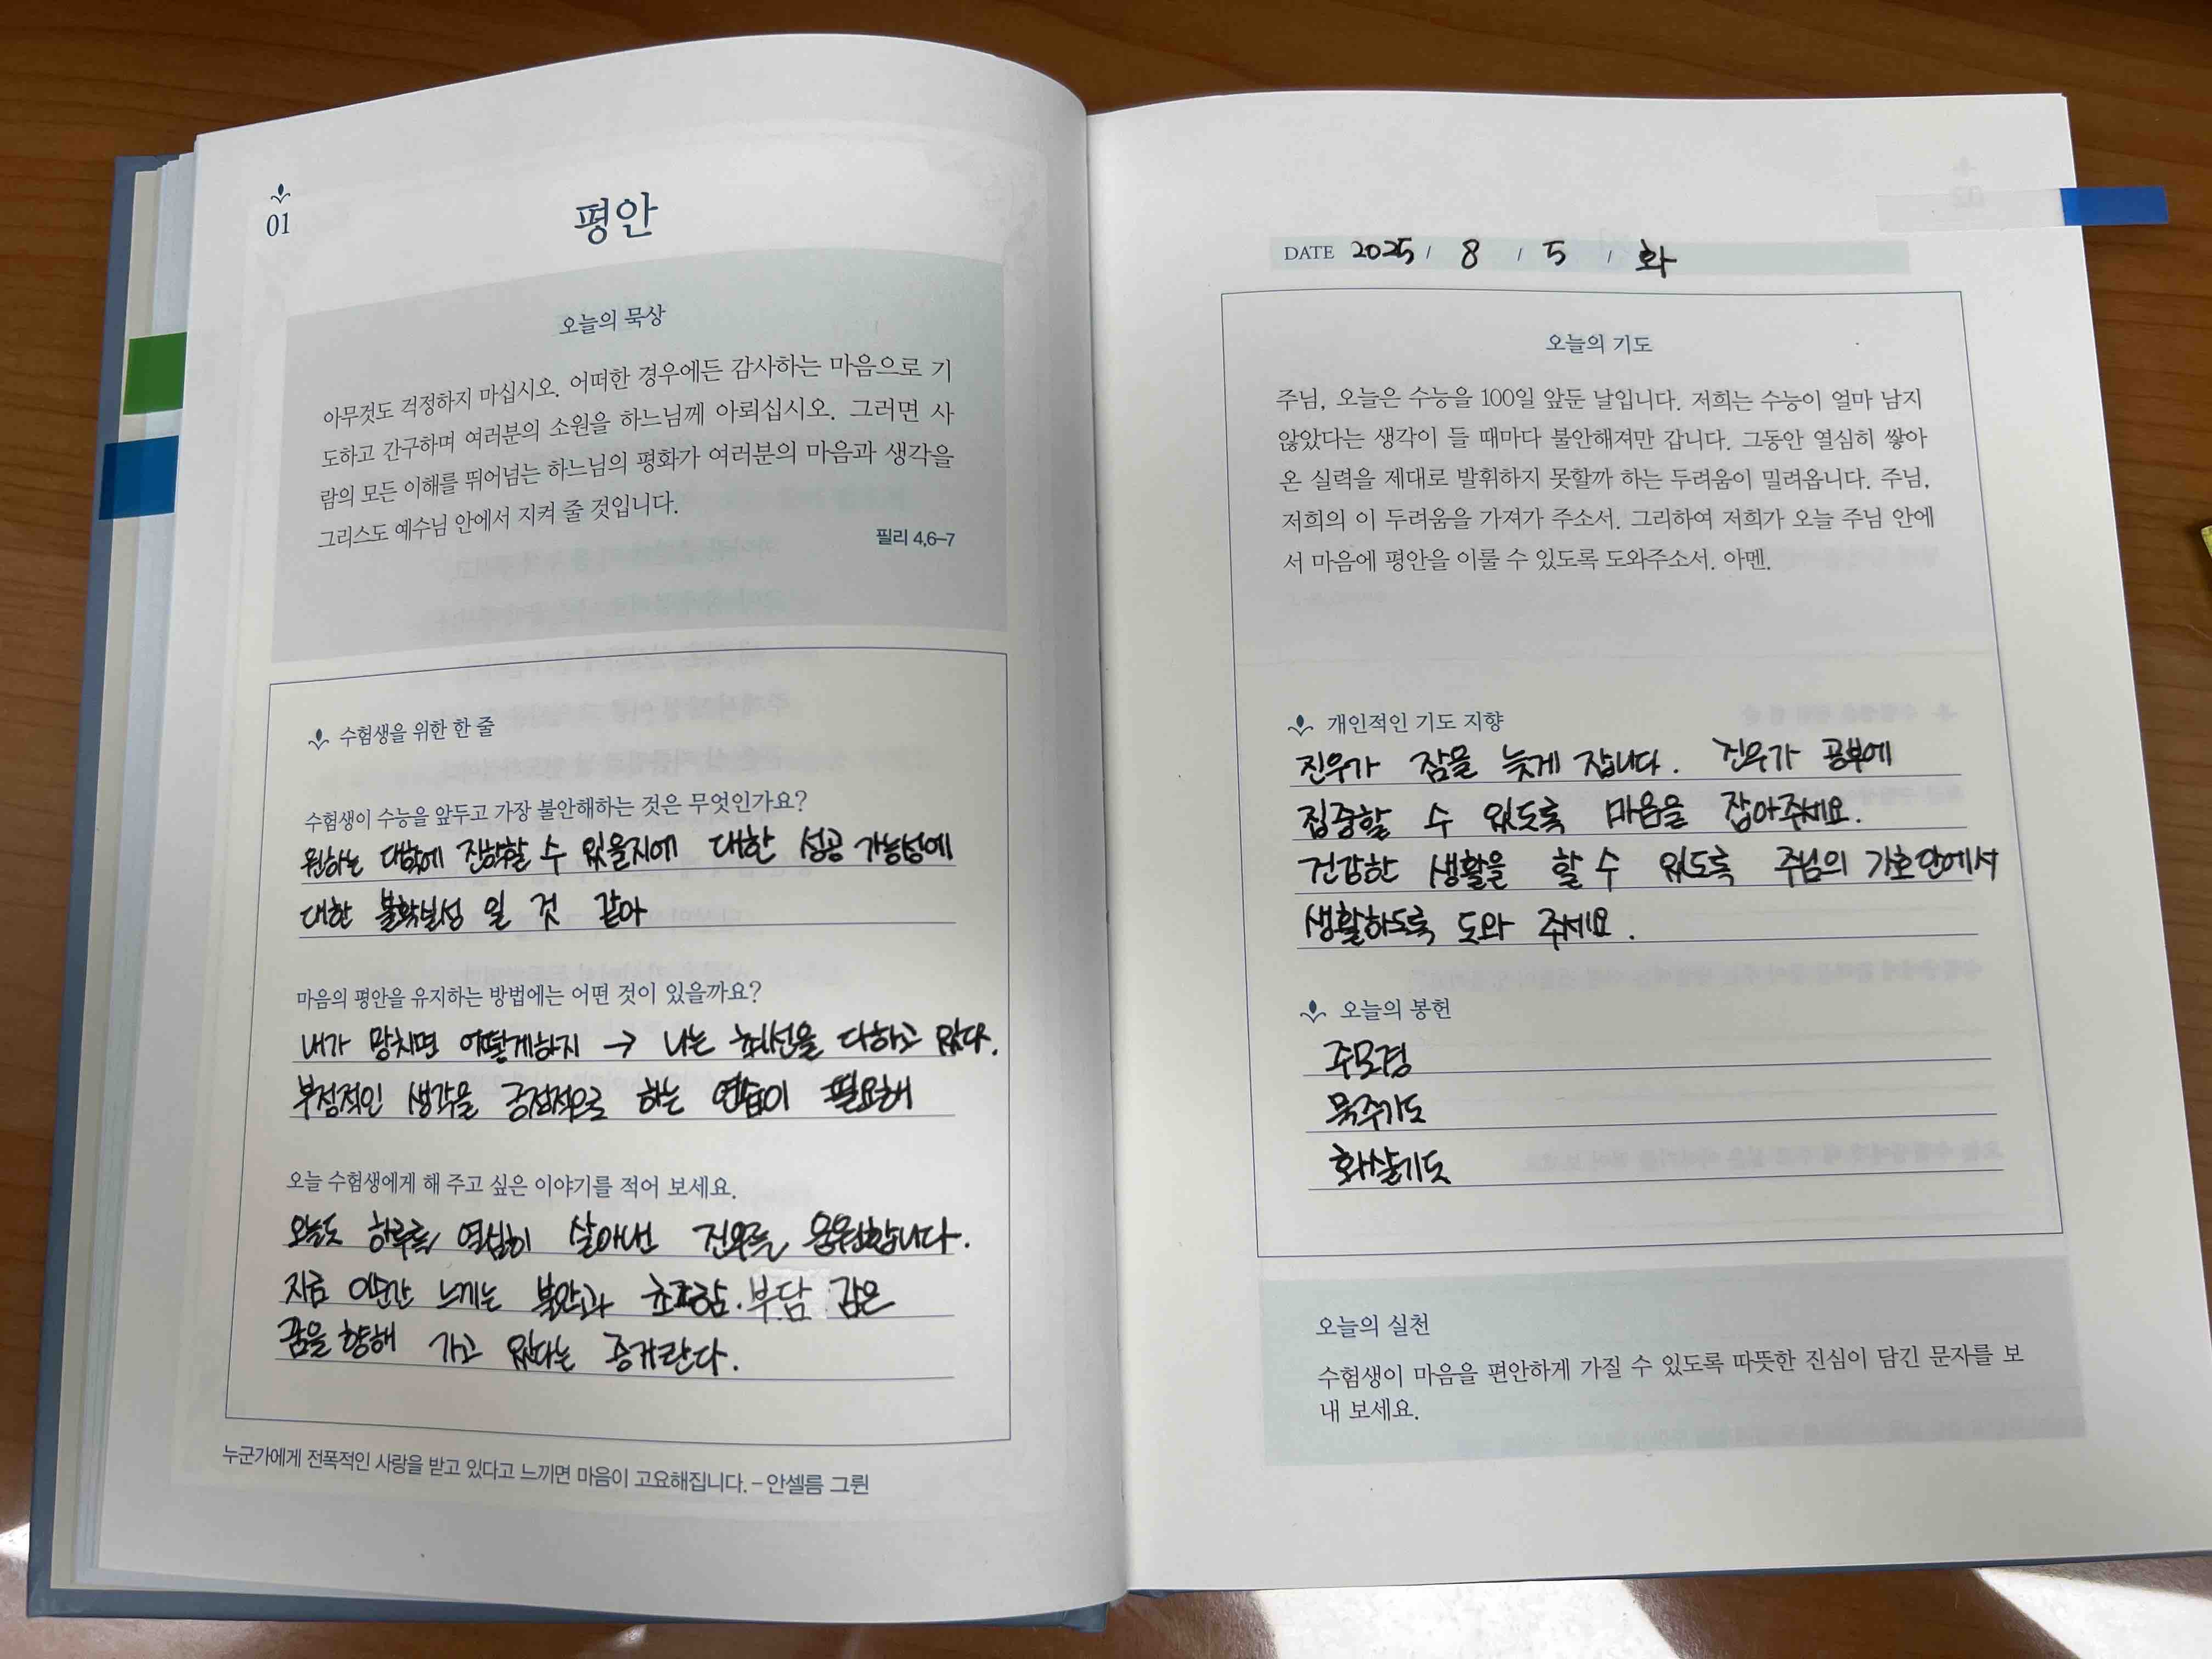 01
평안
오늘의 묵상
아무것도 걱정하지 마십시오. 어떠한 경우에든 감사하는 마음으로 기
도하고 간구하며 여러분의 소원을 하느님께 아뢰십시오. 그러면 사
람의 모든 이해를 뛰어넘는 하느님의 평화가 여러분의 마음과 생각을
그리스도 예수님 안에서 지켜 줄 것입니다.
필리 4,6–7
수험생을 위한 한 줄
수험생이 수능을 앞두고 가장 불안해하는 것은 무엇인가요?
원하는 대학에 진학할 수 있을지에 대한 성공 가능성에
대한 불확실성 일 것 같아
마음의 평안을 유지하는 방법에는 어떤 것이 있을까요?
내가 망치면 어떻게하지 → 나는 최선을 다하고 있다.
부정적인 생각을 긍정적으로 하는 연습이 필요해
오늘 수험생에게 해 주고 싶은 이야기를 적어 보세요.
오늘도 하루를 열심히 살아낸 진우를 응원합니다.
지금 이순간 느끼는 불안과 초조함. 부담 감은
꿈을 향해 가고 있다는 증거란다.
누군가에게 전폭적인 사랑을 받고 있다고 느끼면 마음이 고요해집니다. – 안셀름 그륀
DATE 2025 / 8 / 5 / 화
오늘의 기도
주님, 오늘은 수능을 100일 앞둔 날입니다. 저희는 수능이 얼마 남지
않았다는 생각이 들 때마다 불안해져만 갑니다. 그동안 열심히 쌓아
온 실력을 제대로 발휘하지 못할까 하는 두려움이 밀려옵니다. 주님,
저희의 이 두려움을 가져가 주소서. 그리하여 저희가 오늘 주님 안에
서 마음에 평안을 이룰 수 있도록 도와주소서. 아멘.
개인적인 기도 지향
진우가 잠을 늦게 잡니다. 진우가 공부에
집중할 수 있도록 마음을 잡아주세요.
건강한 생활을 할 수 있도록 주님의 가호안에서
생활하도록 도와 주세요.
오늘의 봉헌
주모경
묵주기도
화살기도
오늘의 실천
수험생이 마음을 편안하게 가질 수 있도록 따뜻한 진심이 담긴 문자를 보
내 보세요.